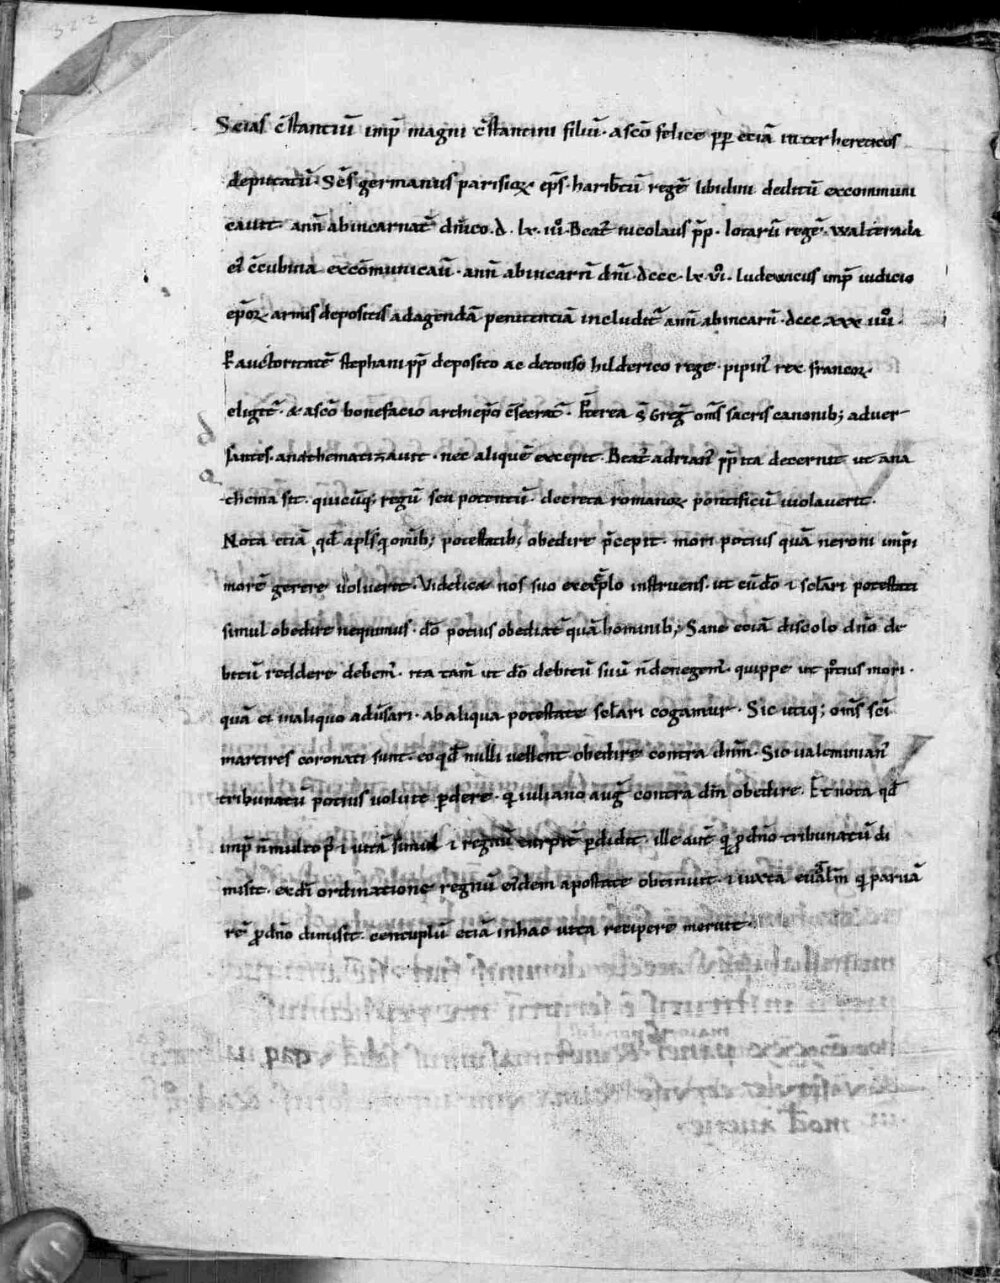 Scias c̄stantiū imp̄ magni c̄stantini filiū · a sc̄o felice pp̄ etiā inter hereticos
deputatū · Sc̄s germanus parisioꝝ ep̄s · haribtū regē libidini deditū excommuni
cauit · ann̄ ab incarnat̄ dn̄ico · d · lx · iiii · Beat᷒ nicolaus pp̄ · lotariū regē · walterada
ei᷒ c̄cubina excōmunicauit · ann̄ ab incarn̄ dn̄i · dccc · lx · vi · ludewicus imp̄ iudicio
ep̄oꝝ armis depositis ad agendā penitentiā includit᷑ ann̄ ab incarn̄ · dccc xxx iiii ·
Ex auctoritate stephani pp̄ deposito ac detonso hilderico rege · pipin᷒ rex francoꝝ
eligit᷑ · & a sc̄o bonefacio archiep̄o c̄secrat᷑ · Preterea s̄ Greg᷒ om̄s sacris canonib; aduer
santes · anathematizauit · nec aliquē excepit · Beat᷒ adrian᷒ pp̄ ita decernit ut ana
thema sit · quicūq; regū seu potentū · decreta romanoꝝ pontificū uiolauerit ·
Nota etiā qd̄ apl̄s q̇ omīb; potestatib; obedire p̄cepit · mori potius quā neroni imp̄i
morē gerere uoluerit · Videlicet nos suo exēplo instruens · ut cū dō & sclari potestati
simul obedire nequimus · dō potius obediat᷑ quā hominib; Sane etiā discolo dn̄o de
bitū reddere debem᷒ · ita tam̄ ut dō debitū suū n̄ denegem᷒ · quippe ut poti᷒ mori ·
quā ei in aliquo aduersari · ab aliqua potestate sclari cogamur · Sic utiq; om̄s sc̄i
martires coronati sunt · eo qd̄ nulli uellent obedire contra dn̄m · Sic ualentinian᷒
tribunatū potius uoluit p̱dere · q̄ iuliano aug᷒ contra dn̄m obedire · Et nota qd̄
imp̄ n̄ multo p᷒ & uitā simul & regnū turpit᷑ p̱didit · ille aut̄ qui p̱ dn̄o tribunatū di
misit · ex di ordinatione regnū ei᷒dem apostate obtinuit · & iuxta euāl̄m q̇ paruā
rē p̱ dn̄o dimisit · centuplū etiā in hac uita recipere meruit ·